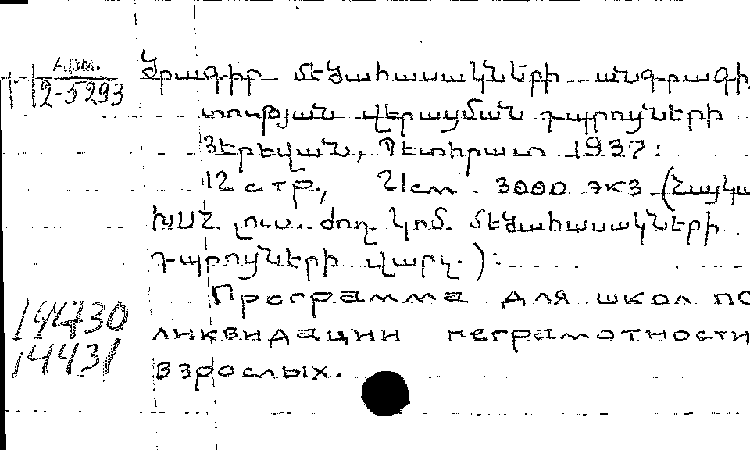 Арм.
2-5293
Ծրագիր մեծահասակների անգրագի
տության վերացման դպրոցների
Յերեվան, Պետհրատ 1937:
12 стр., 21 см. 3000 экз (Հայկա
ԽՍՀ լուս. ժող. կոմ. մեծահասակների
դպրոցների վարչ.):
Программа для школ по
ликвидации неграмотности
взрослых.
14430
14431